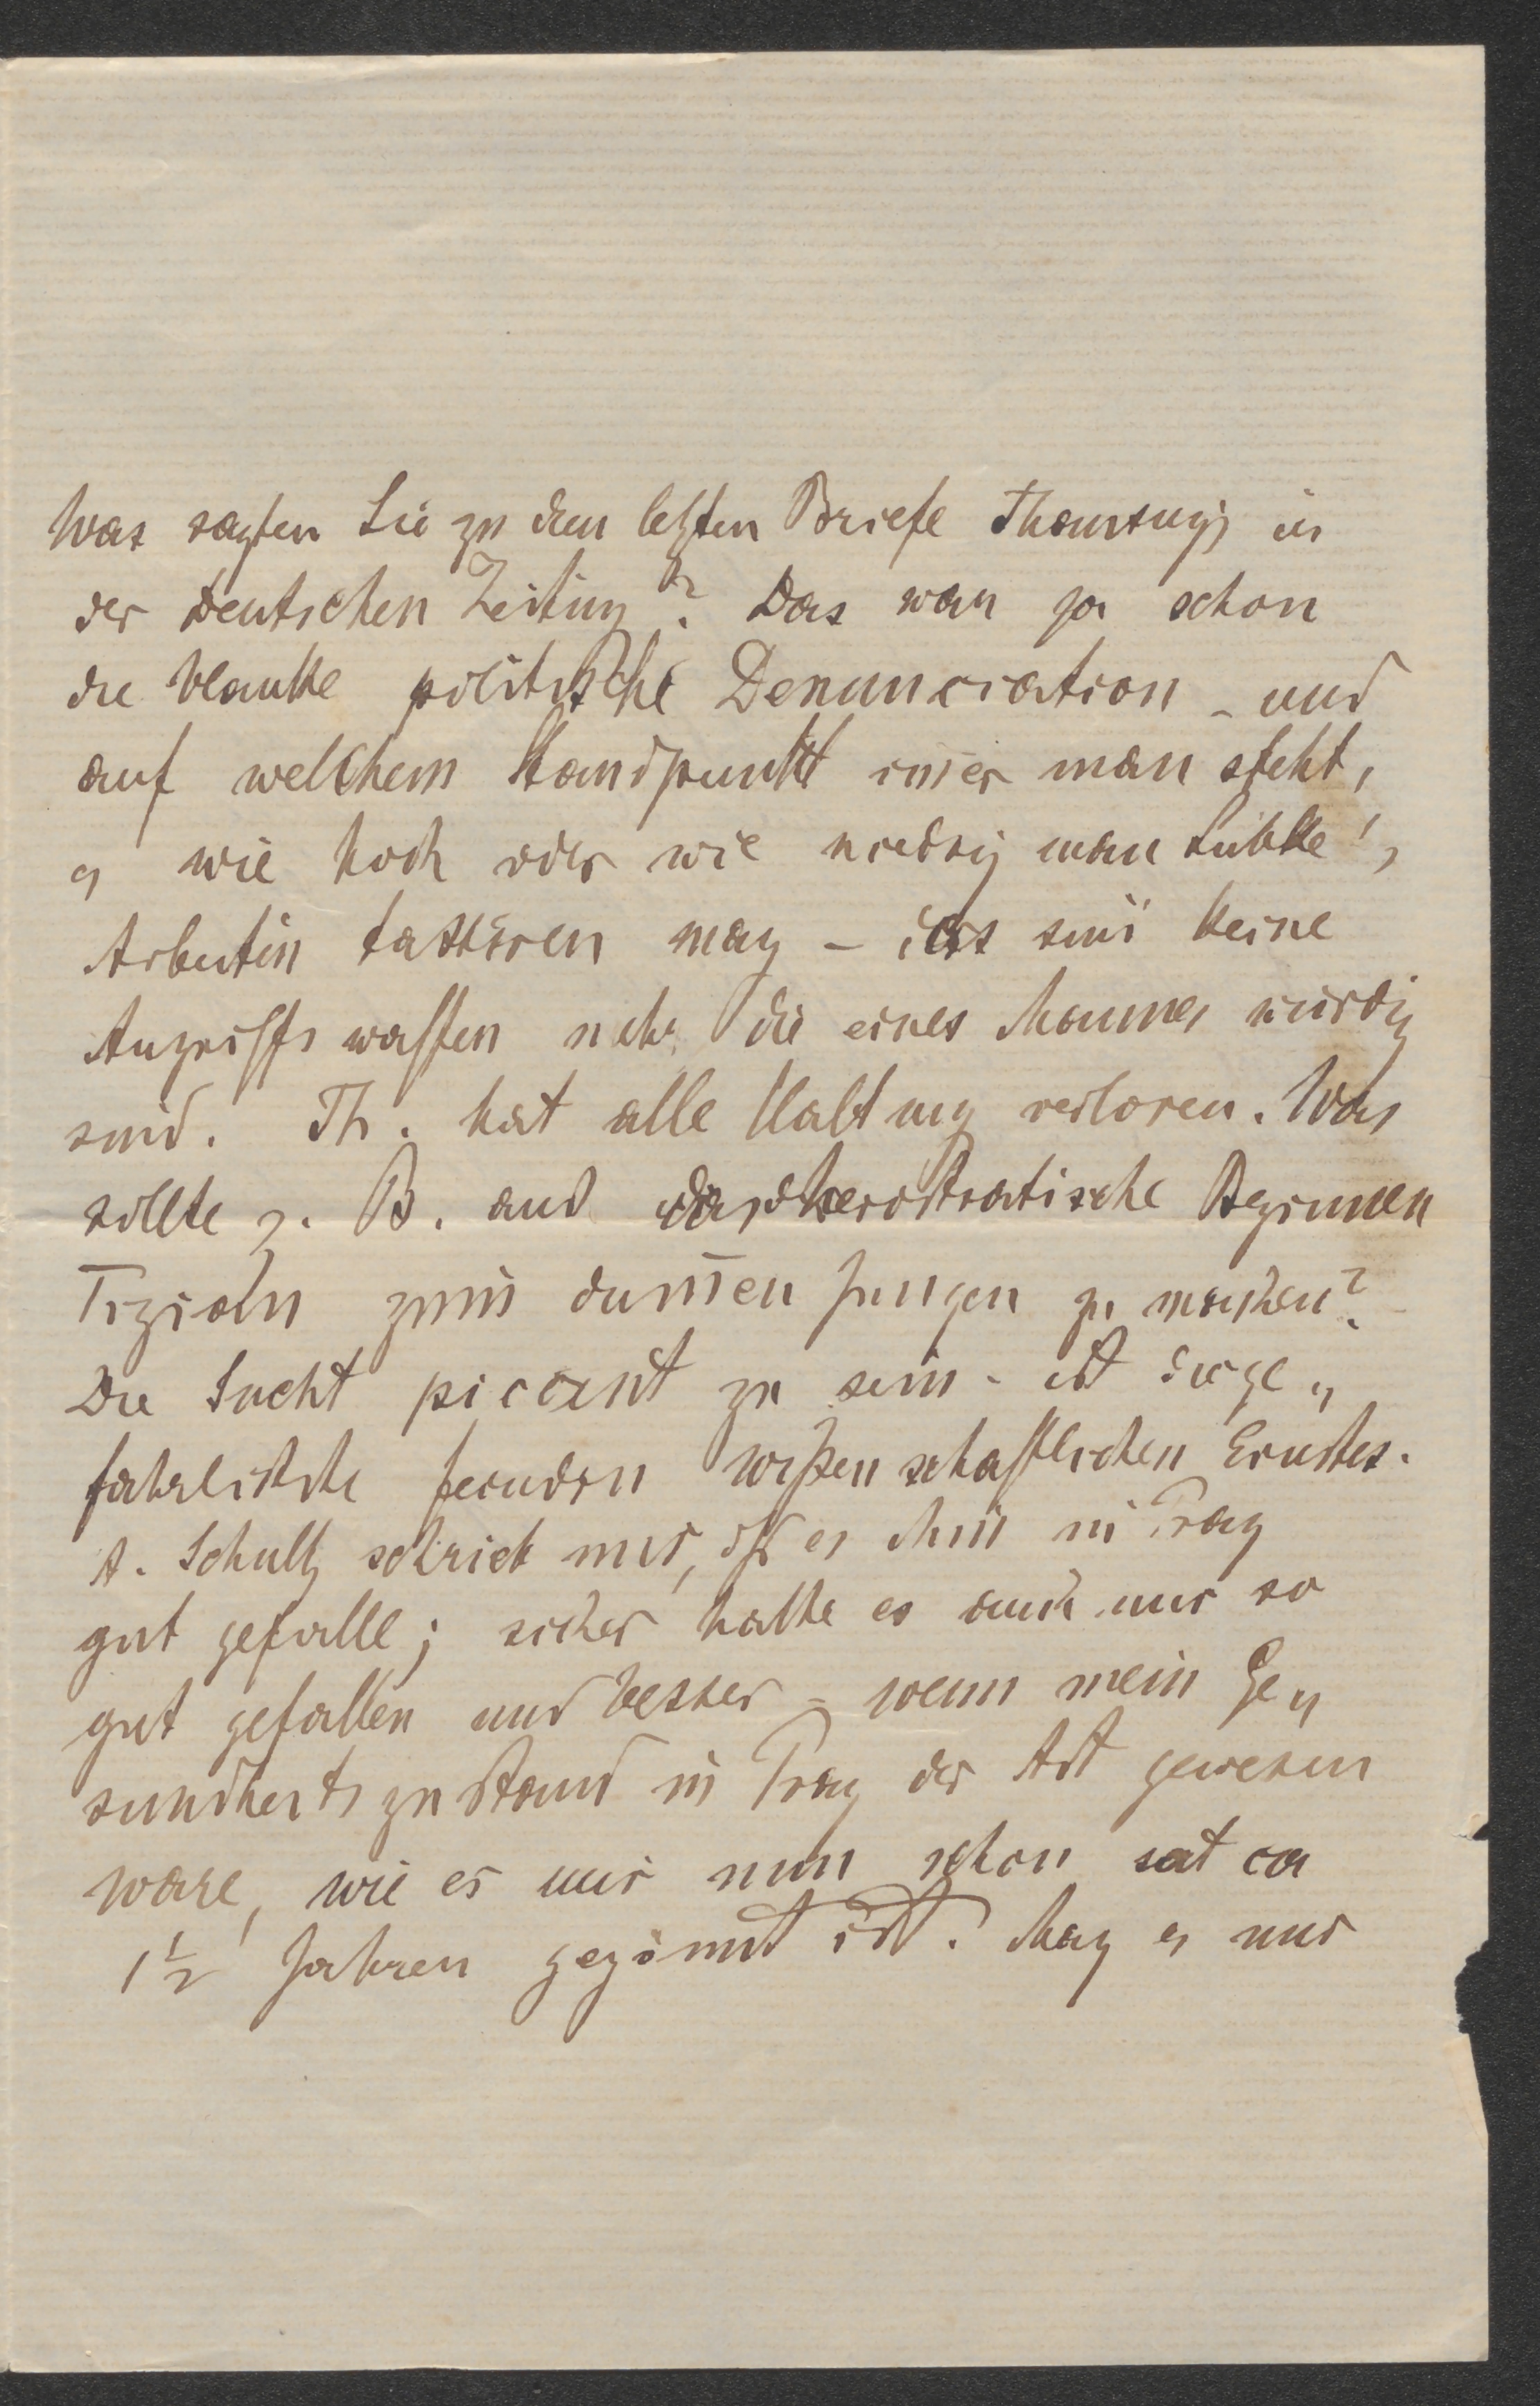 Was sagten Sie zu dem letzten Briefe Thausings in
der Deutschen Zeitung? Das war ja schon
die blanke politische Denunciation – und
auf welchem Standpunkt im̅er man steht,
wie hoch oder wie niedrig man Lübke's
Arbeiten taxiren mag – das sind keine
Angriffswaffen mehr die eines Mannes würdig
sind. Th. hat alle Haltung verloren. Was
sollte z. B. auch das herostratische Beginnen
Tizian zum dum̅en Jungen zu machen?
Die Sucht picant zu sein – ist die ge„
fährlichste Feindin wißenschaftlichen Ernstes.
A. Schultz schrieb mir, dß es ihm in Prag
gut gefalle; sicher hätte es auch mir so
gut gefallen und besser – wenn mein Ge„
sundheitszustand in Prag der Art gewesen
wäre, wie es mir nun schon seit ca
1½ Jahren gegönnt ist. Mag es nur